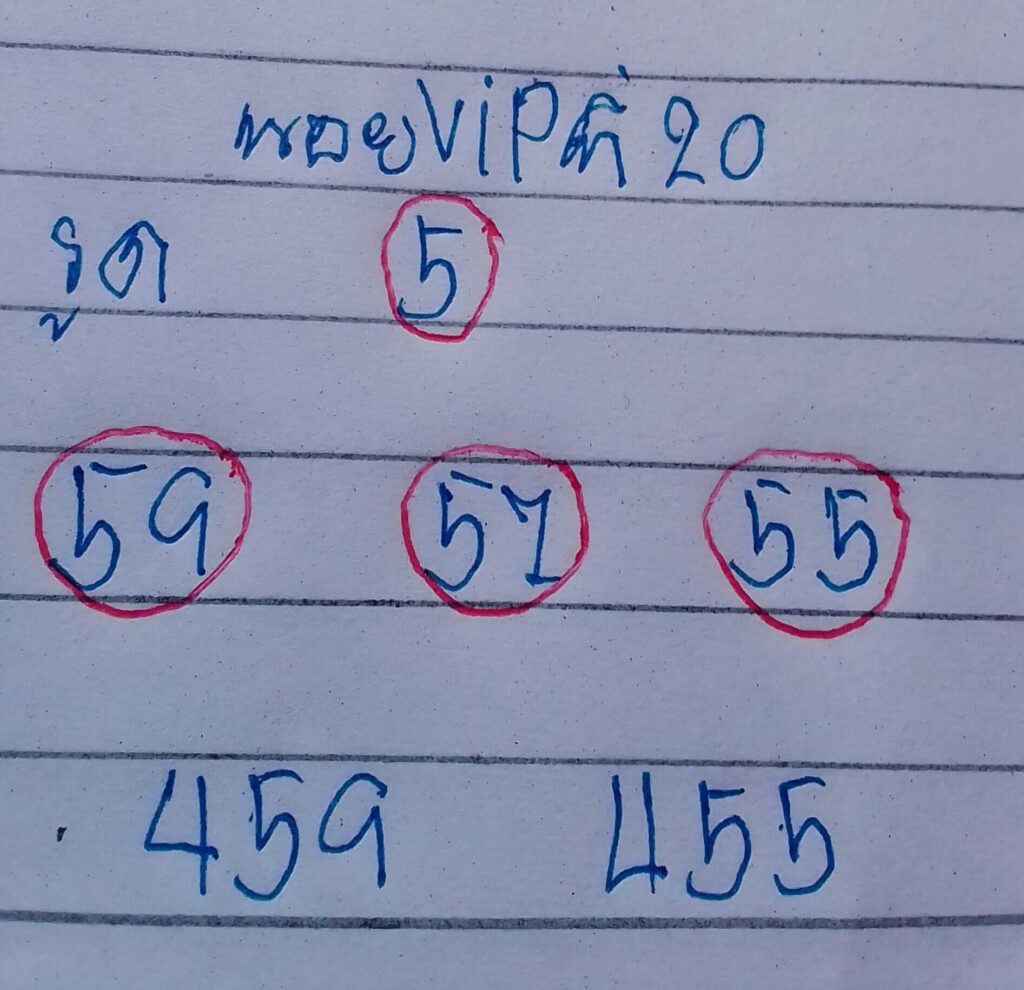 หอยVIPที่ 20
รูด 5
59 57 55
459 455